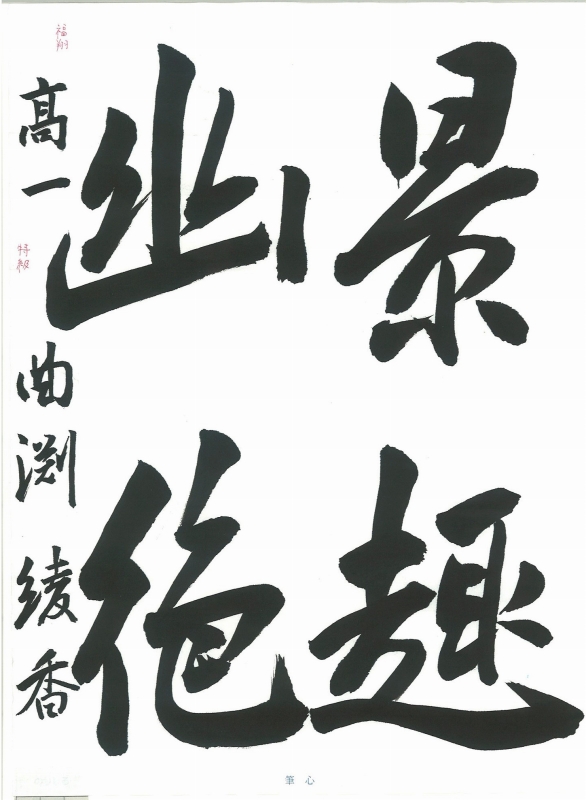 景趣
幽絶
福翔
髙一 特級 曲渕 綾香
筆心